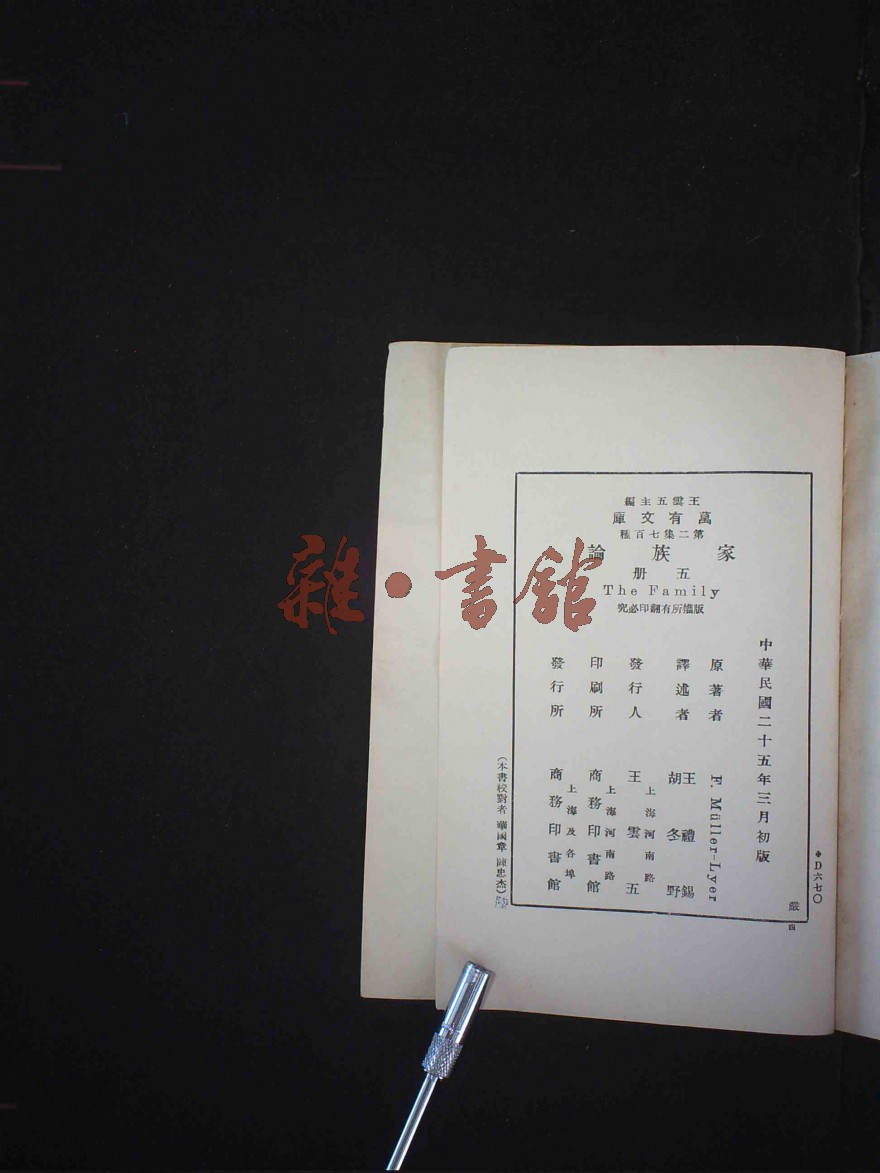 王雲五主編
萬有文庫
第二集七百種
家族論
五册
The Family
版權所有翻印必究
中華民國二十五年三月初版
原著者 F. Müller-Lyer
譯述者 王禮錫 胡冬野
發行人 上海河南路 王雲五
印刷所 上海河南路 商務印書館
發行所 上海及各埠 商務印書館
(本書校對者 陳忠杰)
D六七〇
嚴
四
雜·書館